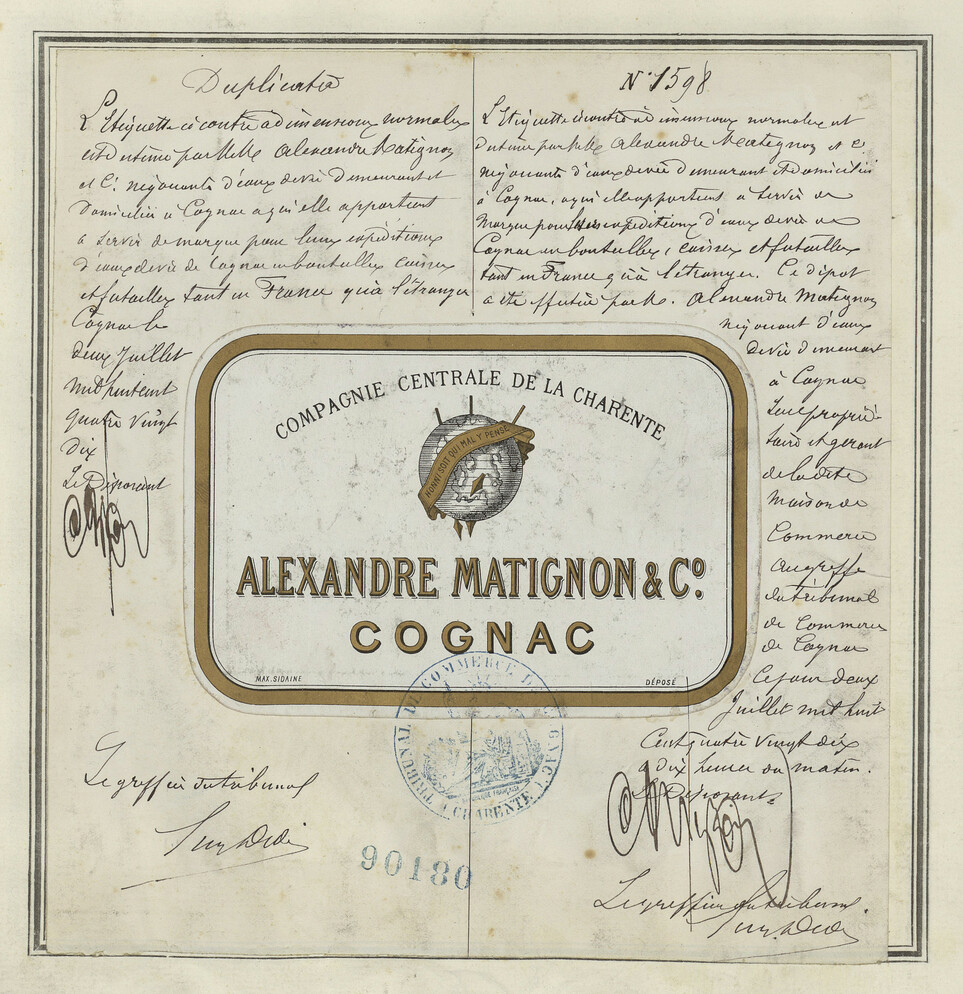 Duplicata
L'Etiquette ci contre à dimensions normales
est de usine par MM. Alexandre Matignon
et Cie. négociants d'eaux de vie demeurant et
domiciliés à Cognac a qui elle appartient
à servir de marque pour leurs expéditions
d'eaux de vie de Cognac en bouteilles caisses
et futailles tant en France qu'à l'étranger
Cognac le
deux Juillet
mil huit cent
quatre vingt
dix
Le Déposant
N° 1598
L'Etiquette ci contre à dimensions normales est
par MM. Alexandre Matignon et Cie.
négociants d'eaux de vie demeurant et domiciliés
à Cognac, a qui elle appartient à servir de
marque pour expéditions d'eaux de vie de
Cognac en bouteilles, caisses et futailles
tant en France qu'à l'étranger. Ce dépôt
a été effectué par M. Alexandre Matignon
négociant d'eaux
de vie demeurant
à Cognac
seul proprié-
taire et gérant
de la dite
maison de
Commerce
au greffe
du tribunal
de Commerce
de Cognac
Ce jour deux
Juillet mil huit
Cent quatre vingt dix
à dix heures du matin.
Le Déposant
COMPAGNIE CENTRALE DE LA CHARENTE
HONNI SOIT QUI MAL Y PENSE
ALEXANDRE MATIGNON & Cº.
COGNAC
MAX. SIDAINE
DÉPOSÉ
TRIBUNAL DE COMMERCE DE COGNAC
CHARENTE
Le greffier du tribunal
90180
Le greffier du tribunal.